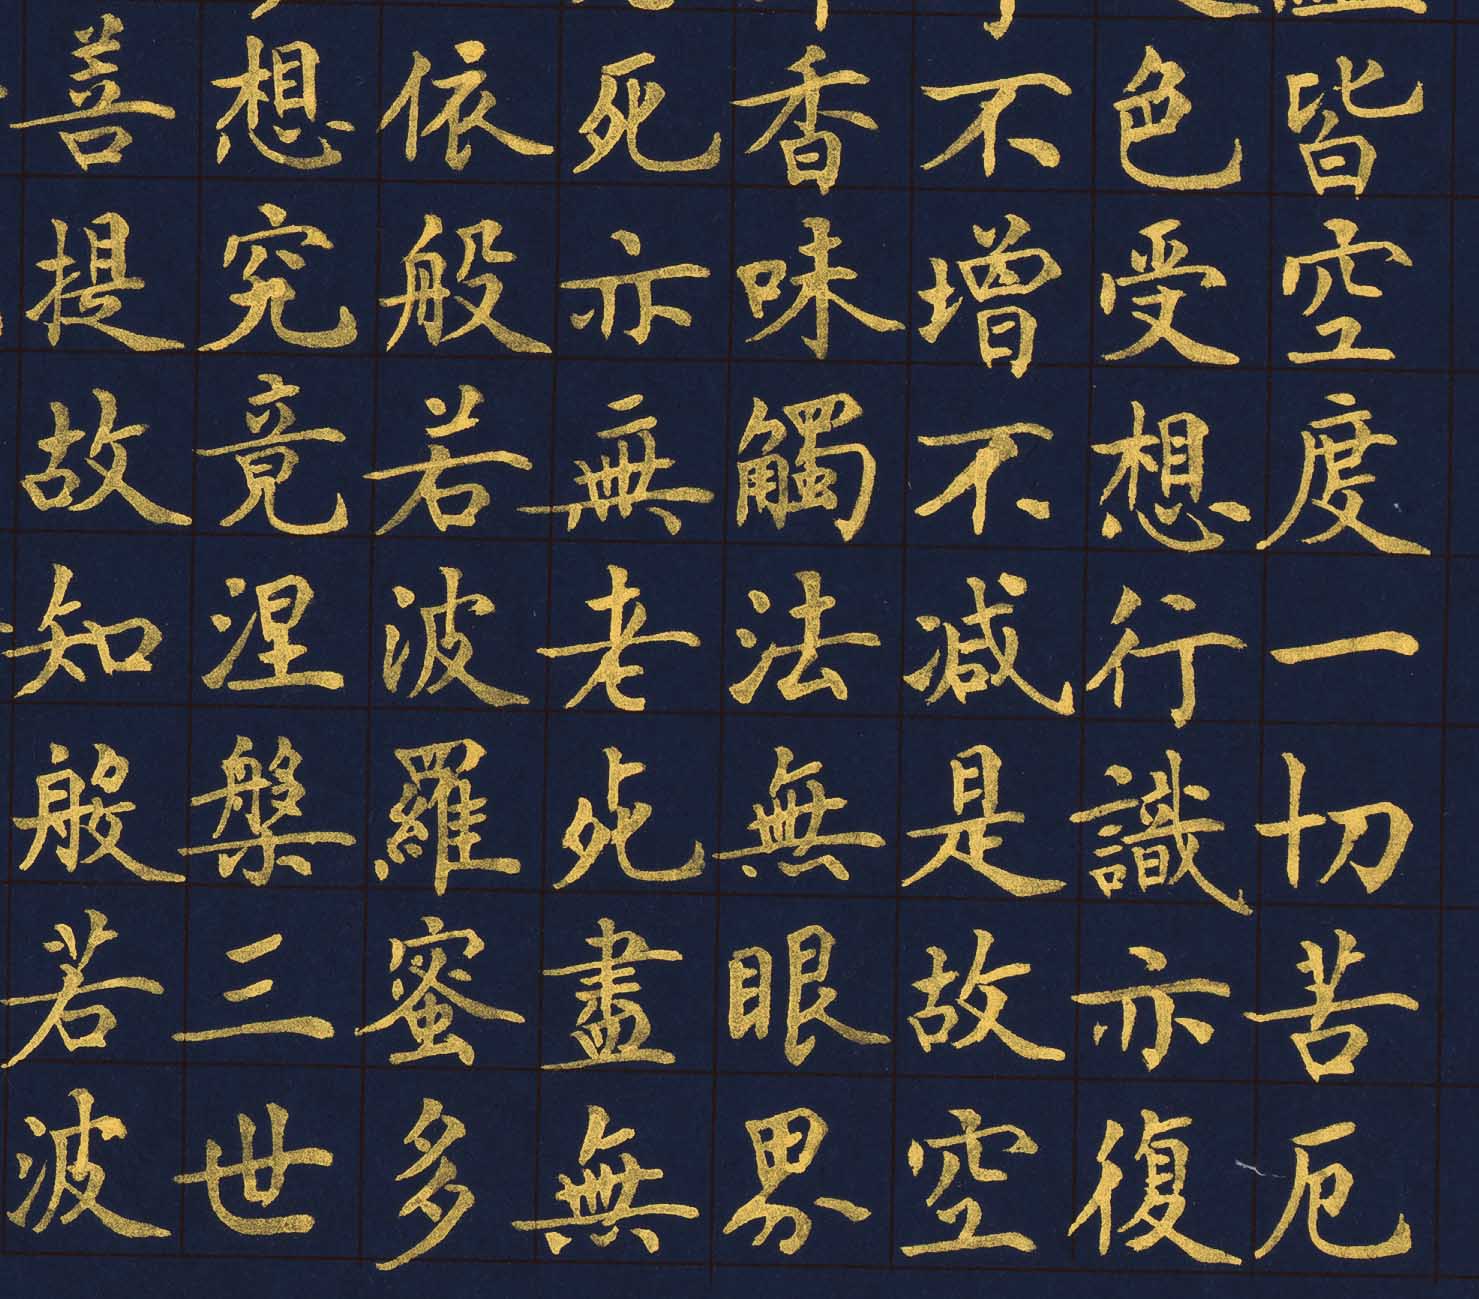 皆空度一切苦厄
色受想行識亦復
不增不減是故空
香味觸法無眼界
死亦無老死盡無
依般若波羅蜜多
想究竟涅槃三世
菩提故知般若波